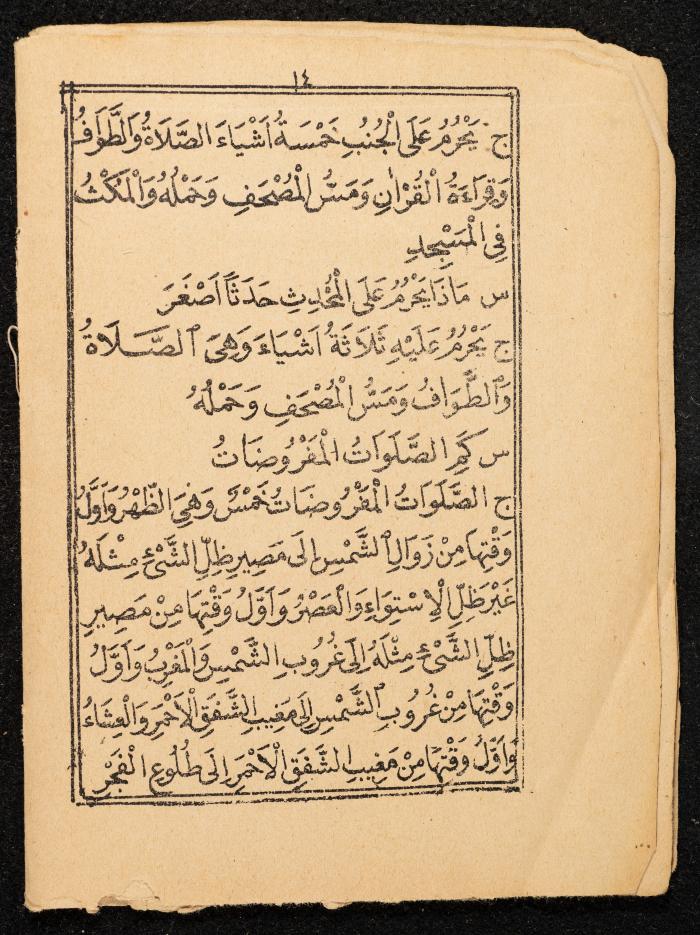 ١٤
ج يَحْرُمُ عَلَى الْجُنُبِ خَمْسَةُ اَشْيَاءَ الصَّلَاةُ وَالطَّوَافُ
وَقِرَاءَةُ الْقُرْاٰنِ وَمَسُّ الْمُصْحَفِ وَحَمْلُهُ وَالْمَكْثُ
فِى الْمَسْجِدِ
س مَاذَا يَحْرُمُ عَلَى الْمُحْدِثِ حَدَثًا اَصْغَرَ
ج يَحْرُمُ عَلَيْهِ ثَلَاثَةُ اَشْيَاءَ وَهِىَ الصَّلَاةُ
وَالطَّوَافُ وَمَسُّ الْمُصْحَفِ وَحَمْلُهُ
س كَمِ الصَّلَوَاتُ الْمَفْرُوضَاتُ
ج الصَّلَوَاتُ الْمَفْرُوضَاتُ خَمْسٌ وَهِىَ الظُّهْرُ وَاَوَّلُ
وَقْتِهَا مِنْ زَوَالِ الشَّمْسِ اِلَى مَصِيرِ ظِلِّ الشَّىْءِ مِثْلَهُ
غَيْرَ ظِلِّ الْاِسْتِوَاءِ وَالْعَصْرُ وَاَوَّلُ وَقْتِهَا مِنْ مَصِيرِ
ظِلِّ الشَّىْءِ مِثْلَهُ اِلَى غُرُوبِ الشَّمْسِ وَالْمَغْرِبُ وَاَوَّلُ
وَقْتِهَا مِنْ غُرُوبِ الشَّمْسِ اِلَى مَغِيبِ الشَّفَقِ الْاَحْمَرِ وَالْعِشَاءُ
وَاَوَّلُ وَقْتِهَا مِنْ مَغِيبِ الشَّفَقِ الْاَحْمَرِ اِلَى طُلُوعِ الْفَجْرِ